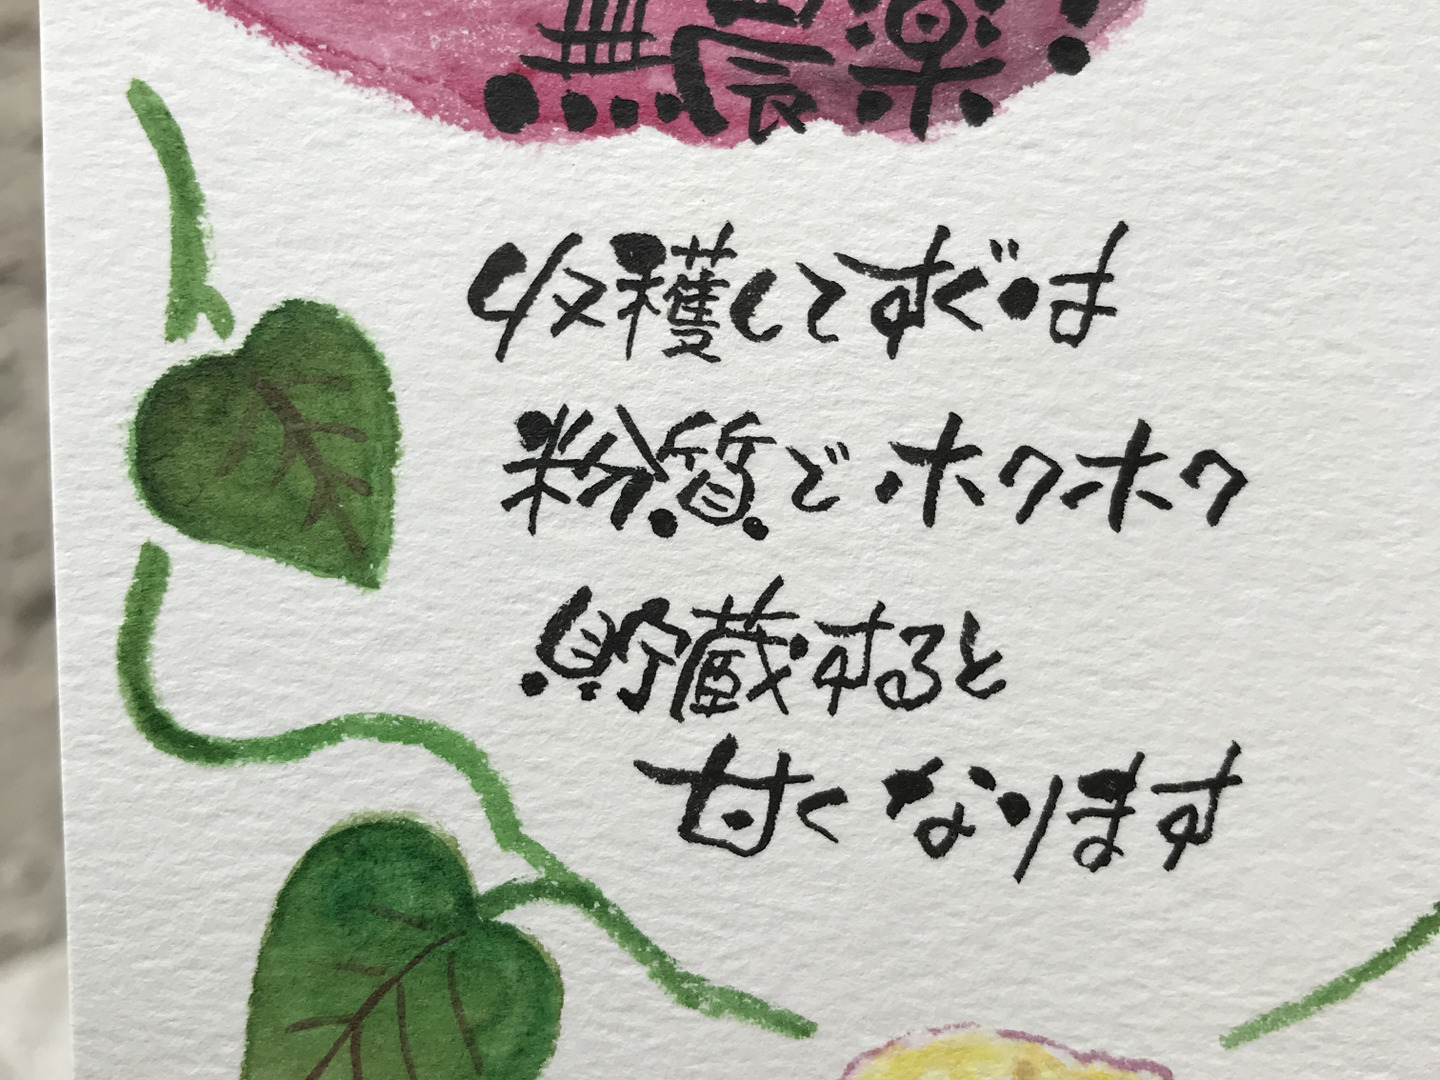 無農薬!
収穫してすぐは
粉質でホクホク
貯蔵すると
甘くなります